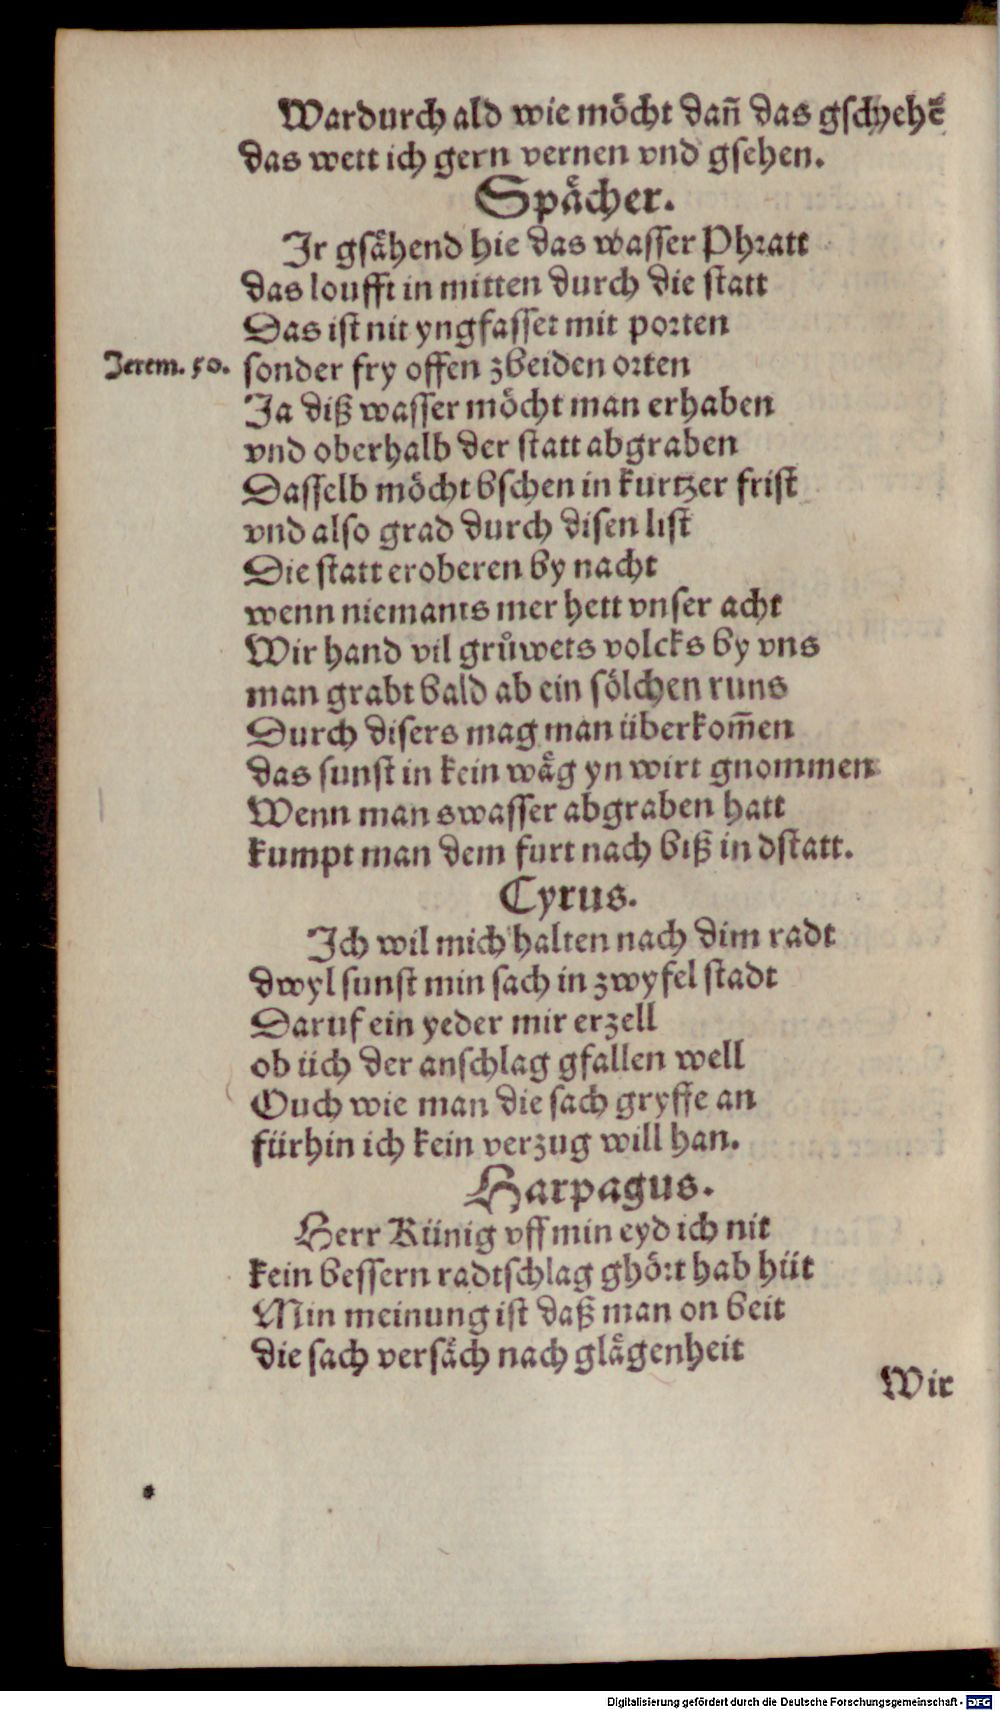 Wardurch ald wie möcht dañ das gschyehē
das wett ich gern vernen vnd gsehen.
Spächer.
Jr gsähend hie das wasser Phratt
das loufft in mitten durch die statt
Das ist nit yngfasset mit porten
Jerem. 50. sonder fry offen zbeiden orten
Ja diß wasser möcht man erhaben
vnd oberhalb der statt abgraben
Dasselb möcht bschen in kurtzer frist
vnd also grad durch disen list
Die statt eroberen by nacht
wenn niemants mer hett vnser acht
Wir hand vil grůwets volcks by vns
man grabt bald ab ein sölchen runs
Durch disers mag man überkom̄en
das sunst in kein wäg yn wirt gnommen
Wenn man swasser abgraben hatt
kumpt man dem furt nach biß in dstatt.
Cyrus.
Ich wil mich halten nach dim radt
dwyl sunst min sach in zwyfel stadt
Daruf ein yeder mir erzell
ob üch der anschlag gfallen well
Ouch wie man die sach gryffe an
fürhin ich kein verzug will han.
Harpagus.
Herr Künig vff min eyd ich nit
kein bessern radtschlag ghört hab hüt
Min meinung ist daß man on beit
die sach versäch nach glägenheit
Wir
Digitalisierung gefördert durch die Deutsche Forschungsgemeinschaft - DFG